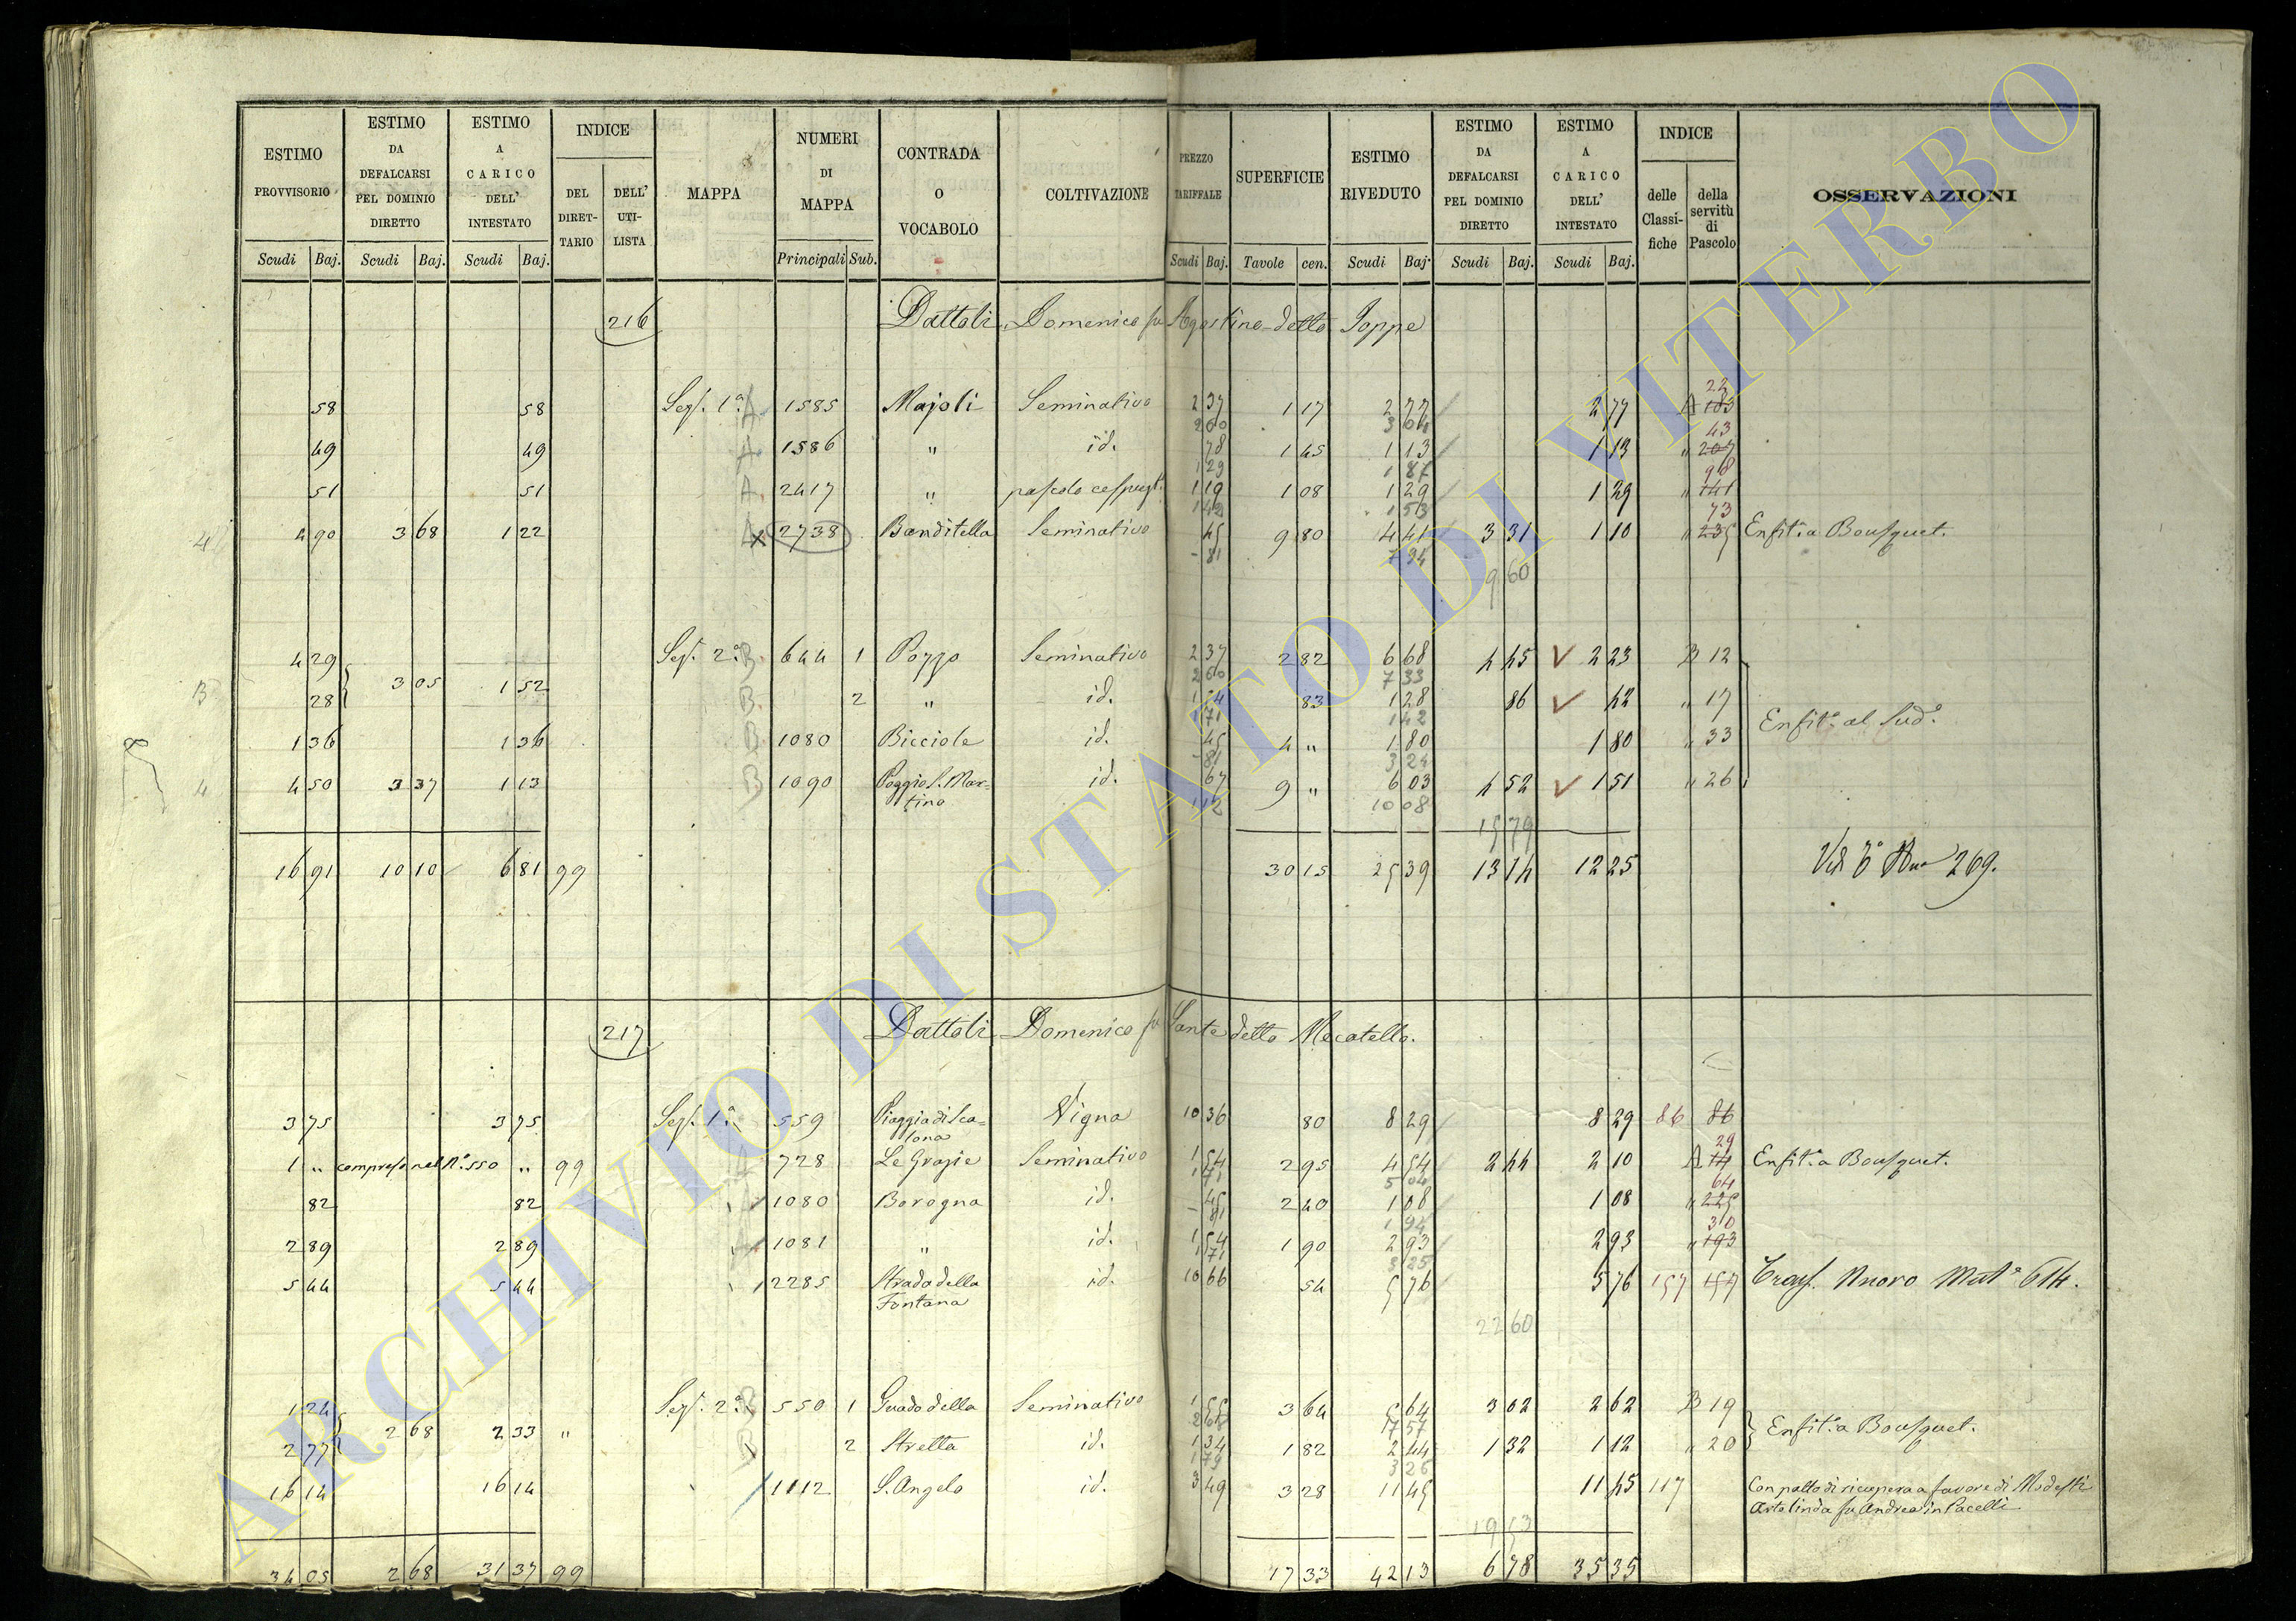 ESTIMO PROVVISORIO Scudi Baj.
ESTIMO DA DEFALCARSI PEL DOMINIO DIRETTO Scudi Baj.
ESTIMO A CARICO DELL' INTESTATO Scudi Baj.
INDICE DEL DIRET- TARIO DELL' UTI- LISTA
MAPPA
NUMERI DI MAPPA Principali Sub.
CONTRADA O VOCABOLO
COLTIVAZIONE
PREZZO TARIFFALE Scudi Baj.
SUPERFICIE Tavole cen.
ESTIMO RIVEDUTO Scudi Baj.
ESTIMO DA DEFALCARSI PEL DOMINIO DIRETTO Scudi Baj.
ESTIMO A CARICO DELL' INTESTATO Scudi Baj.
INDICE delle Classi- fiche della servitù di Pascolo
OSSERVAZIONI
216 Dattoli Domenico fu Agostino detto Joppe
58 58 Sez. 1ª A 1585 Majoli Seminativo 2 37 1 17 2 77 2 77 A 183 22
2 60 3 04
49 49 A 1586 " id. 78 1 45 1 13 1 13 " 207 43
1 29 1 87
51 51 A 2417 " pascolo cespugl. 1 19 1 08 1 29 1 29 " 141 98
1 42 1 53
4 4 90 3 68 1 22 A 2738 Banditella Seminativo 45 9 80 4 41 3 31 1 10 " 235 73 Enfit. a Bousquet.
- 81 7 94
9 60
4 29 Sez. 2ª B 644 1 Pozzo Seminativo 2 37 2 82 6 68 4 45 2 23 B 12
3 05 1 52 2 60 7 33
B 28 B 2 " id. 1 54 83 1 28 86 42 " 17
1 71 1 42 Enfit. al Sud.º
1 36 1 36 B 1080 Bicciole id. 45 4 " 1 80 1 80 " 33
- 81 3 24
4 4 50 3 37 1 13 B 1090 Poggio S. Mar- id. 67 9 " 6 03 4 52 1 51 " 26
tino 1 12 10 08
15 79
16 91 10 10 6 81 99 30 15 25 39 13 14 12 25 269.
217 Dattoli Domenico fu Sante detto Mecatello.
3 75 3 75 Sez. 1ª 559 Piaggia di Sca- Vigna 10 36 80 8 29 8 29 86 86
lona
1 " compreso nel Nº 550 " 99 728 Le Grazie Seminativo 1 54 2 95 4 54 2 44 2 10 A 14 29 Enfit. a Bousquet.
1 71 5 04
82 82 1080 Borogna id. 45 2 40 1 08 1 08 " 225 64
- 81 1 94
2 89 2 89 1081 " id. 1 54 1 90 2 93 2 93 " 193 30
1 71 3 25
5 44 5 44 2285 Strada della id. 10 66 54 5 76 5 76 157 157 Trasp. Nuovo Matª 614.
Fontana
22 60
1 24 Sez. 2ª B 550 1 Guado della Seminativo 1 55 3 64 5 64 3 02 2 62 B 19
2 68 2 33 " Enfit. a Bousquet.
2 77 B 2 Stretta id. 1 34 1 82 2 44 1 32 1 12 " 20
1 79 3 26
16 14 16 14 1112 S. Angelo id. 3 49 3 28 11 45 11 45 117 Con patto di ricupera a favore di Modesti
Artelinda fu Andrea in Pacelli
19 53
34 05 2 68 31 37 99 17 33 42 13 6 78 35 35
ARCHIVIO DI STATO DI VITERBO